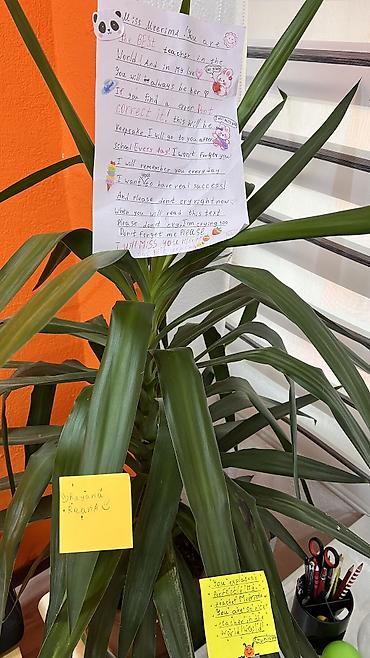 Miss Meerima! You are
the BEST teacher in the
World! And in my live
You will always be her
If you find a error Don't
correct it! this will be
keepsake I will go to you after
school Every day! I won't forget you!
I will remember you every day
I want you have real success!
And Please don't cry right now,
When you will read this text
Please don't cry, I'm crying too
Don't forget me PLEASE
I WILL MISS YOU
Dhayana
Raana
You explaning
teacher Meerima
You are so nice
teacher in the
World World